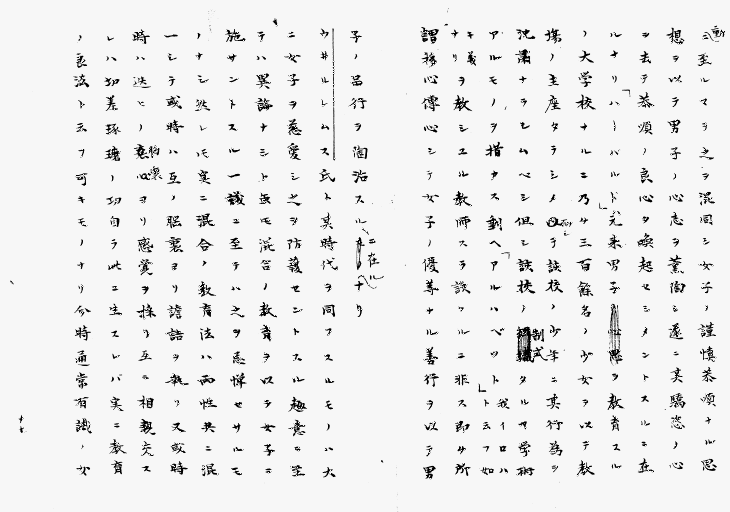 ニ至ルマテ之ヲ混同シ女子ノ謹慎恭順ナル思
想ヲ以テ男子ノ心志ヲ薫陶シ遂ニ其驕恣ノ心
ヲ去テ恭順ノ良心ヲ喚起セシメントスルニ在
ルナリ「ハーバルド」元来男子ヲ教育スル
ノ大学校ナルニ乃サ三百餘名ノ少女ヲ以テ教
場ノ主座タラシメ以テ該校ノ少年ニ其行為ヲ
ナラシムベシ但シ該校ノ制式タルヤ学術
アルモノヲ措タス到ヘ「アルハベット」我イロハトニフ如
キ義ナリヲ教シユル教師スラ該フルニ非ス即サ所
謂移心傳心シテ女子ノ優尊ナル善行ヲ以テ男
子ノ品行ヲ陶冶スルニ在ルナリ
ウヰルレムス氏ト其時代ヲ同フスルモノハ大
ニ女子ヲ慈愛シ之ヲ防護セントスル趣意ニ至
テハ異論ナシト雖モ混合ノ教育ヲ以テ女子ニ
施サントスル一議ニ至テハ之ヲ忌憚セサルモ
ノナシ然レモ実ニ混合ノ教育法ハ両性共ニ混
一シテ或時ハ互ノ胸裏ヨリ談話ヲ執リ又或時
時ハ迭ヒノ意心ヨリ感覚ヲ採リ互ニ相親交ス
レハ切差琢磨ノ功自ラ此ニ生スレバ実ニ教育
ノ良法ト云フ可キモノナリ今時通常有識ノ女